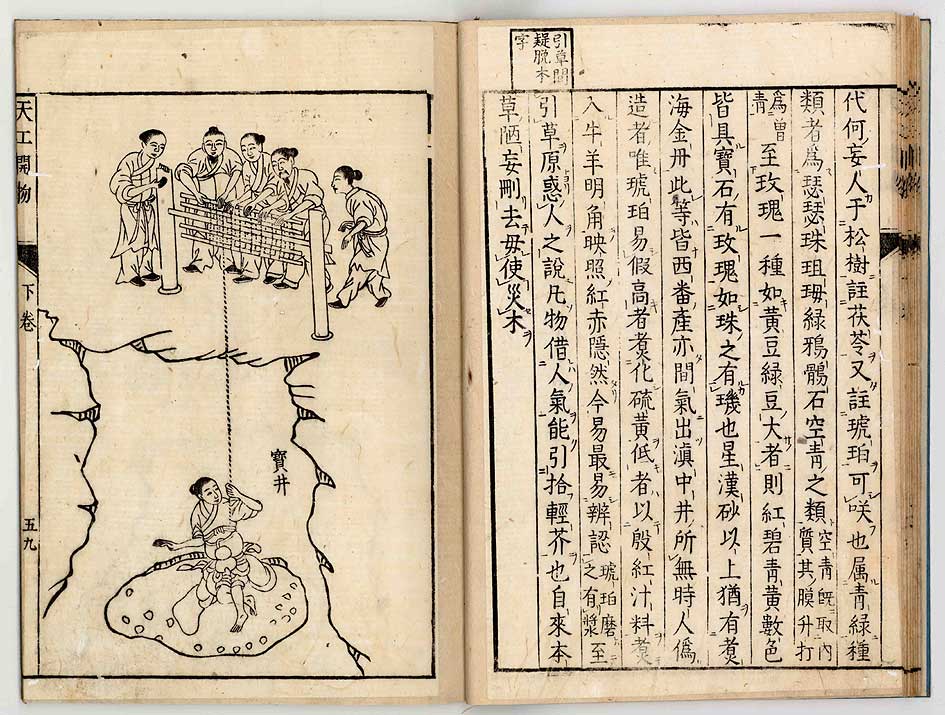 引草間
疑脱本
字
代何妄人于松樹註茯苓又註琥珀可咲也属青綠種
類者爲瑟瑟珠珇母綠鴉鶻石空青之類空青既取內質其膜升打
爲曾青至玫瑰一種如黃豆綠豆大者則紅碧青黃數色
皆具寶石有玫瑰如珠之有璣也星漢砂以上猶有煮
海金丹此等皆西番產亦間氣出滇中井所無時人僞
造者唯琥珀易假高者煮化硫黃低者以殷紅汁料煮
入牛羊明角映照紅赤隱然今易最易辨認琥珀磨之有漿至
引草原惑人之說凡物借人氣能引拾輕芥也自來本
草陋妄刪去毋使災木
寶井
天工開物 下卷 五九